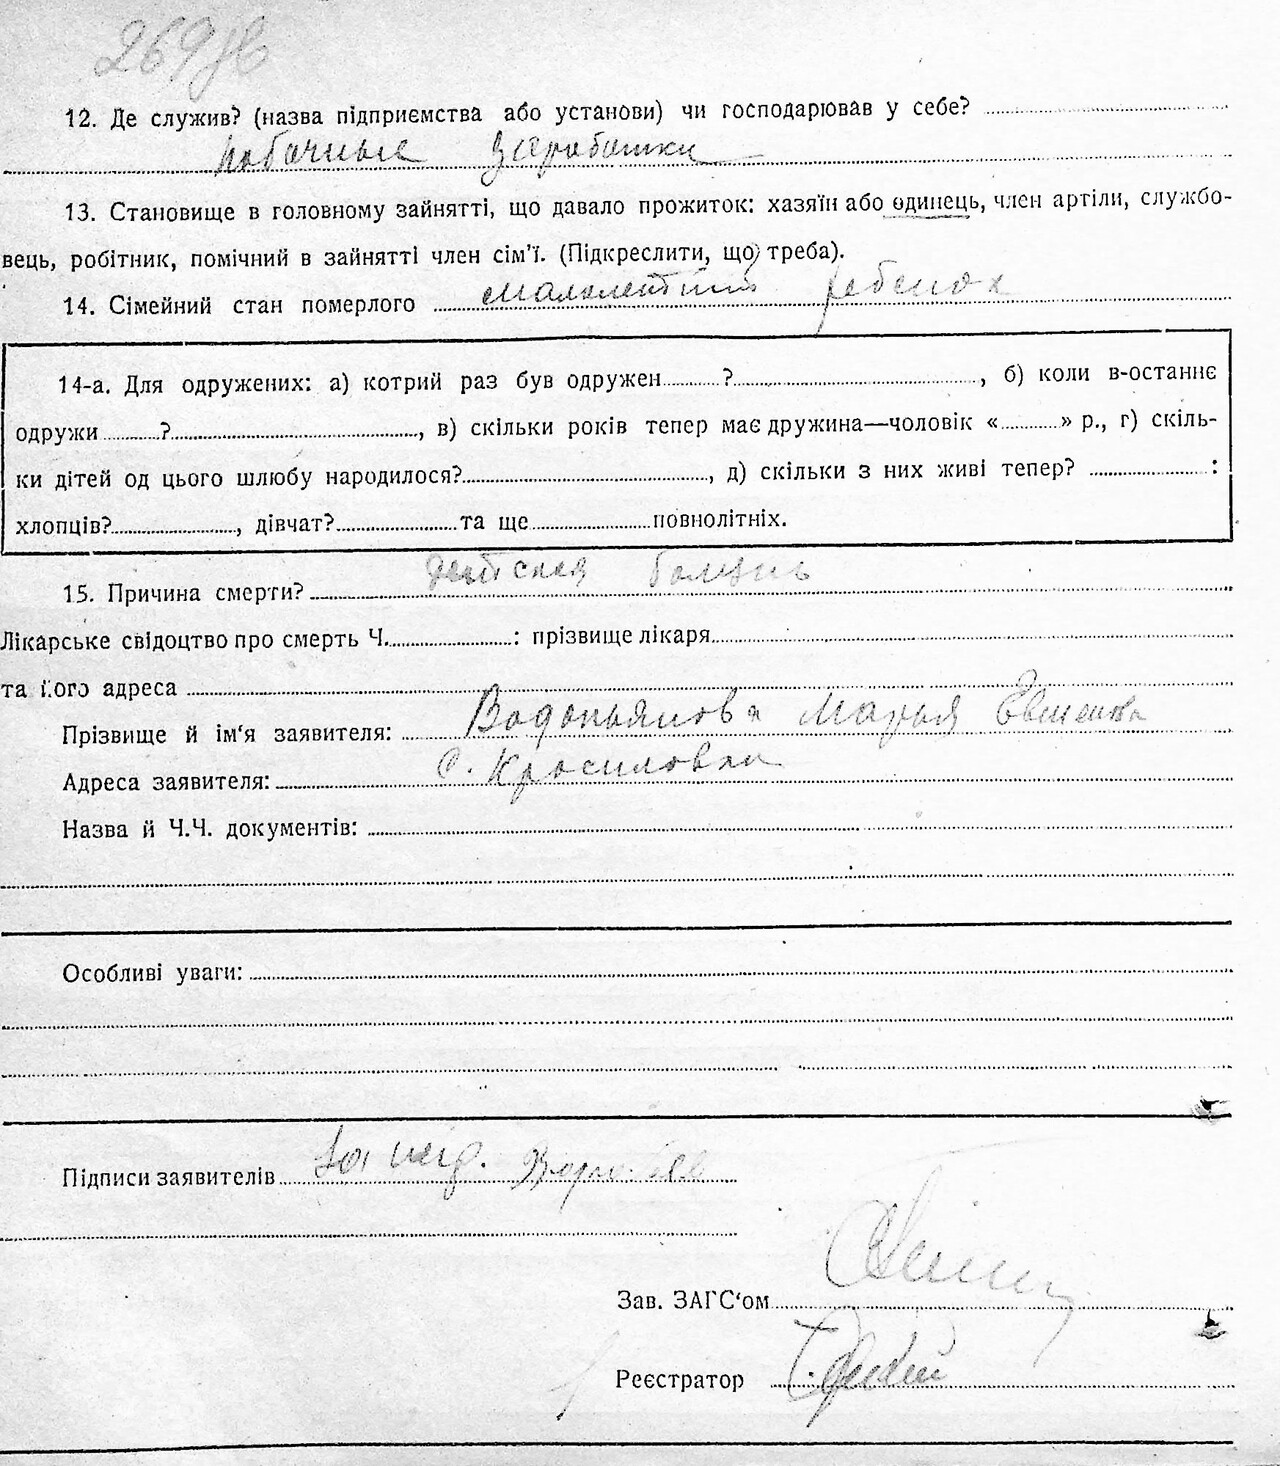 269 зв
12. Де служив? (назва підприємства або установи) чи господарював у себе?
рабочные заработки
13. Становище в головному зайнятті, що давало прожиток: хазяїн або одинець, член артілі, службо-
вець, робітник, помічний в зайнятті член сім'ї. (Підкреслити, що треба).
14. Сімейний стан померлого малолетний ребенок
14-а. Для одружених: а) котрий раз був одружен ? , б) коли в-останнє
одружи ? , в) скільки років тепер має дружина—чоловік « » р., г) скіль-
ки дітей од цього шлюбу народилося? , д) скільки з них живі тепер? :
хлопців? , дівчат? та ще повнолітніх.
15. Причина смерти? детская болезнь
Лікарське свідоцтво про смерть Ч. : прізвище лікаря
та його адреса
Прізвище й ім'я заявителя: Водопьянова Марья
Адреса заявителя: с. Красиловка
Назва й Ч.Ч. документів:
Особливі уваги:
Підписи заявителів за неїр.
Зав. ЗАГС'ом
Реєстратор